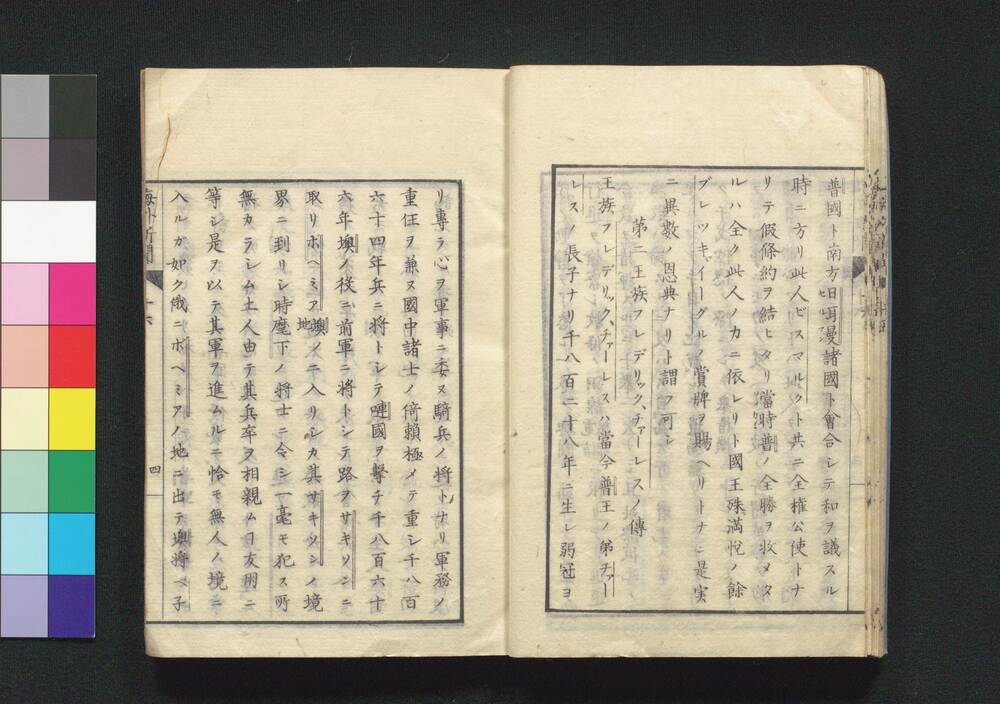 普國ト南方日耳曼諸國ト會合シテ和ヲ議スル
時ニ方リ此人ビスマルクト共ニ全權公使トナ
リテ假條約ヲ結ヒタリ當時普ノ全勝ヲ收メタ
ルハ全ク此人ノ力ニ依レリト國王殊滿悅ノ餘
ブレッキ イーグルノ賞牌ヲ賜ヘリトナニ是実
ニ異數ノ恩典ナリト謂フ可シ
第二王族フレデリックチァーレスノ傳
王族フレデリックチァーレスハ當今普王ノ弟チァー
レスノ長子ナリ千八百二十八年ニ生レ弱冠ヨ
リ專ラ心ヲ軍事ニ委ヌ騎兵ノ将トナリ軍務ノ
重任ヲ兼ヌ國中諸士ノ倚賴極メテ重シ千八百
六十四年兵ニ将トシテ嗹國ヲ擊チ千八百六十
六年墺ノ役ニ前軍ニ将トシテ路ヲサキソンニ
取リボヘミア墺ノ地ニ入リシカ其サキソンノ境
界ニ到リシ時麾下ノ将士ニ令シ一毫モ犯ス所
無カラシム土人由テ其兵卒ヲ相親ムヿ友朋ニ
等シ是ヲ以テ其軍ヲ進ムルニ恰モ無人ノ境ニ
入ルカ如ク俄ニボヘミアノ地ニ出テ墺将ベ子
海外新聞
四